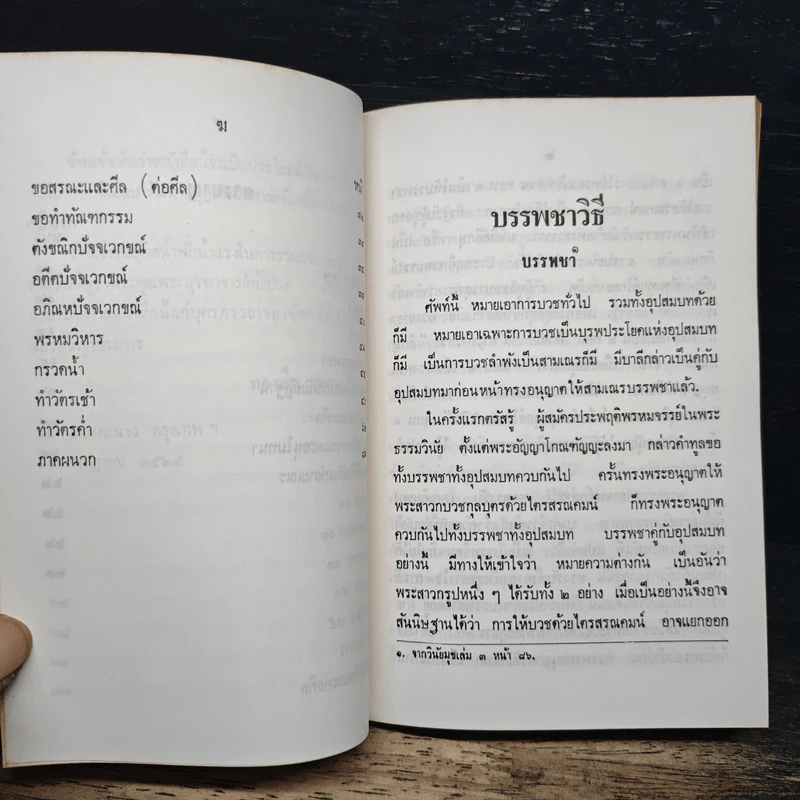 ฆ
ขอสรณะและศีล (ต่อศีล)
ขอทำทัณฑกรรม
ตังขณิกปัจจเวกขณ์
อตีตปัจจเวกขณ์
อภิณหปัจจเวกขณ์
พรหมวิหาร
กรวดน้ำ
ทำวัตรเช้า
ทำวัตรค่ำ
ภาคผนวก
บรรพชาวิธี
บรรพชา๑
ศัพท์นี้ หมายเอาการบวชทั่วไป รวมทั้งอุปสมบทด้วย
ก็มี หมายเอาเฉพาะการบวชเป็นบุรพประโยคแห่งอุปสมบท
ก็มี เป็นการบวชลำพังเป็นสามเณรก็มี มีบาลีกล่าวเป็นคู่กับ
อุปสมบทมาก่อนหน้าทรงอนุญาตให้สามเณรบรรพชาแล้ว.
ในครั้งแรกตรัสรู้ ผู้สมัครประพฤติพรหมจรรย์ในพระ
ธรรมวินัย ตั้งแต่พระอัญญาโกณฑัญญะลงมา กล่าวคำทูลขอ
ทั้งบรรพชาทั้งอุปสมบทควบกันไป ครั้นทรงพระอนุญาตให้
พระสาวกบวชกุลบุตรด้วยไตรสรณคมน์ ก็ทรงพระอนุญาต
ควบกันไปทั้งบรรพชาทั้งอุปสมบท บรรพชาคู่กับอุปสมบท
อย่างนี้ มีทางให้เข้าใจว่า หมายความต่างกัน เป็นอันว่า
พระสาวกรูปหนึ่ง ๆ ได้รับทั้ง ๒ อย่าง เมื่อเป็นอย่างนี้จึงอาจ
สันนิษฐานได้ว่า การให้บวชด้วยไตรสรณคมน์ อาจแยกออก
๑. จากวินัยมุขเล่ม ๓ หน้า ๘๖.